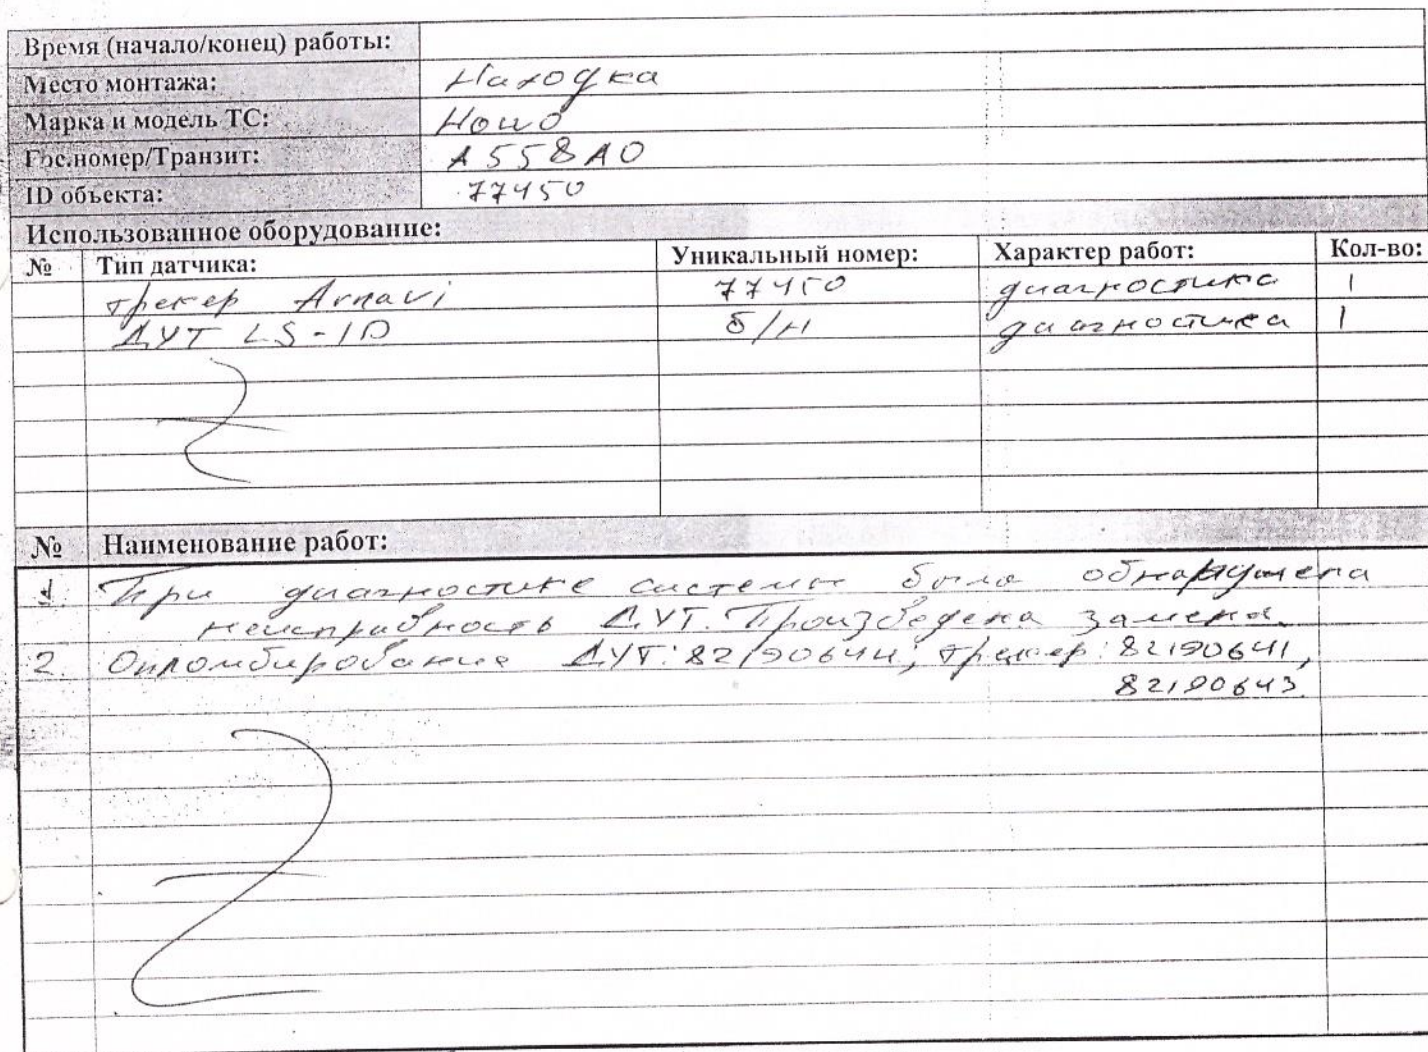 Время (начало/конец) работы:
Место монтажа: Находка
Марка и модель ТС: Ношо
Гос.номер/Транзит: А558АО
ID объекта: 77450
Использованное оборудование:
№ Тип датчика: Уникальный номер: Характер работ: Кол-во:
трекер Arnavi 77450 диагностика 1
ДУТ LS-1D б/н диагностика 1
№ Наименование работ:
1. При диагностике системы была обнаружена
неисправность ДУТ. Произведена замена.
2. Опломбирование ДУТ: 82190644; трекер: 82190641,
82190643.